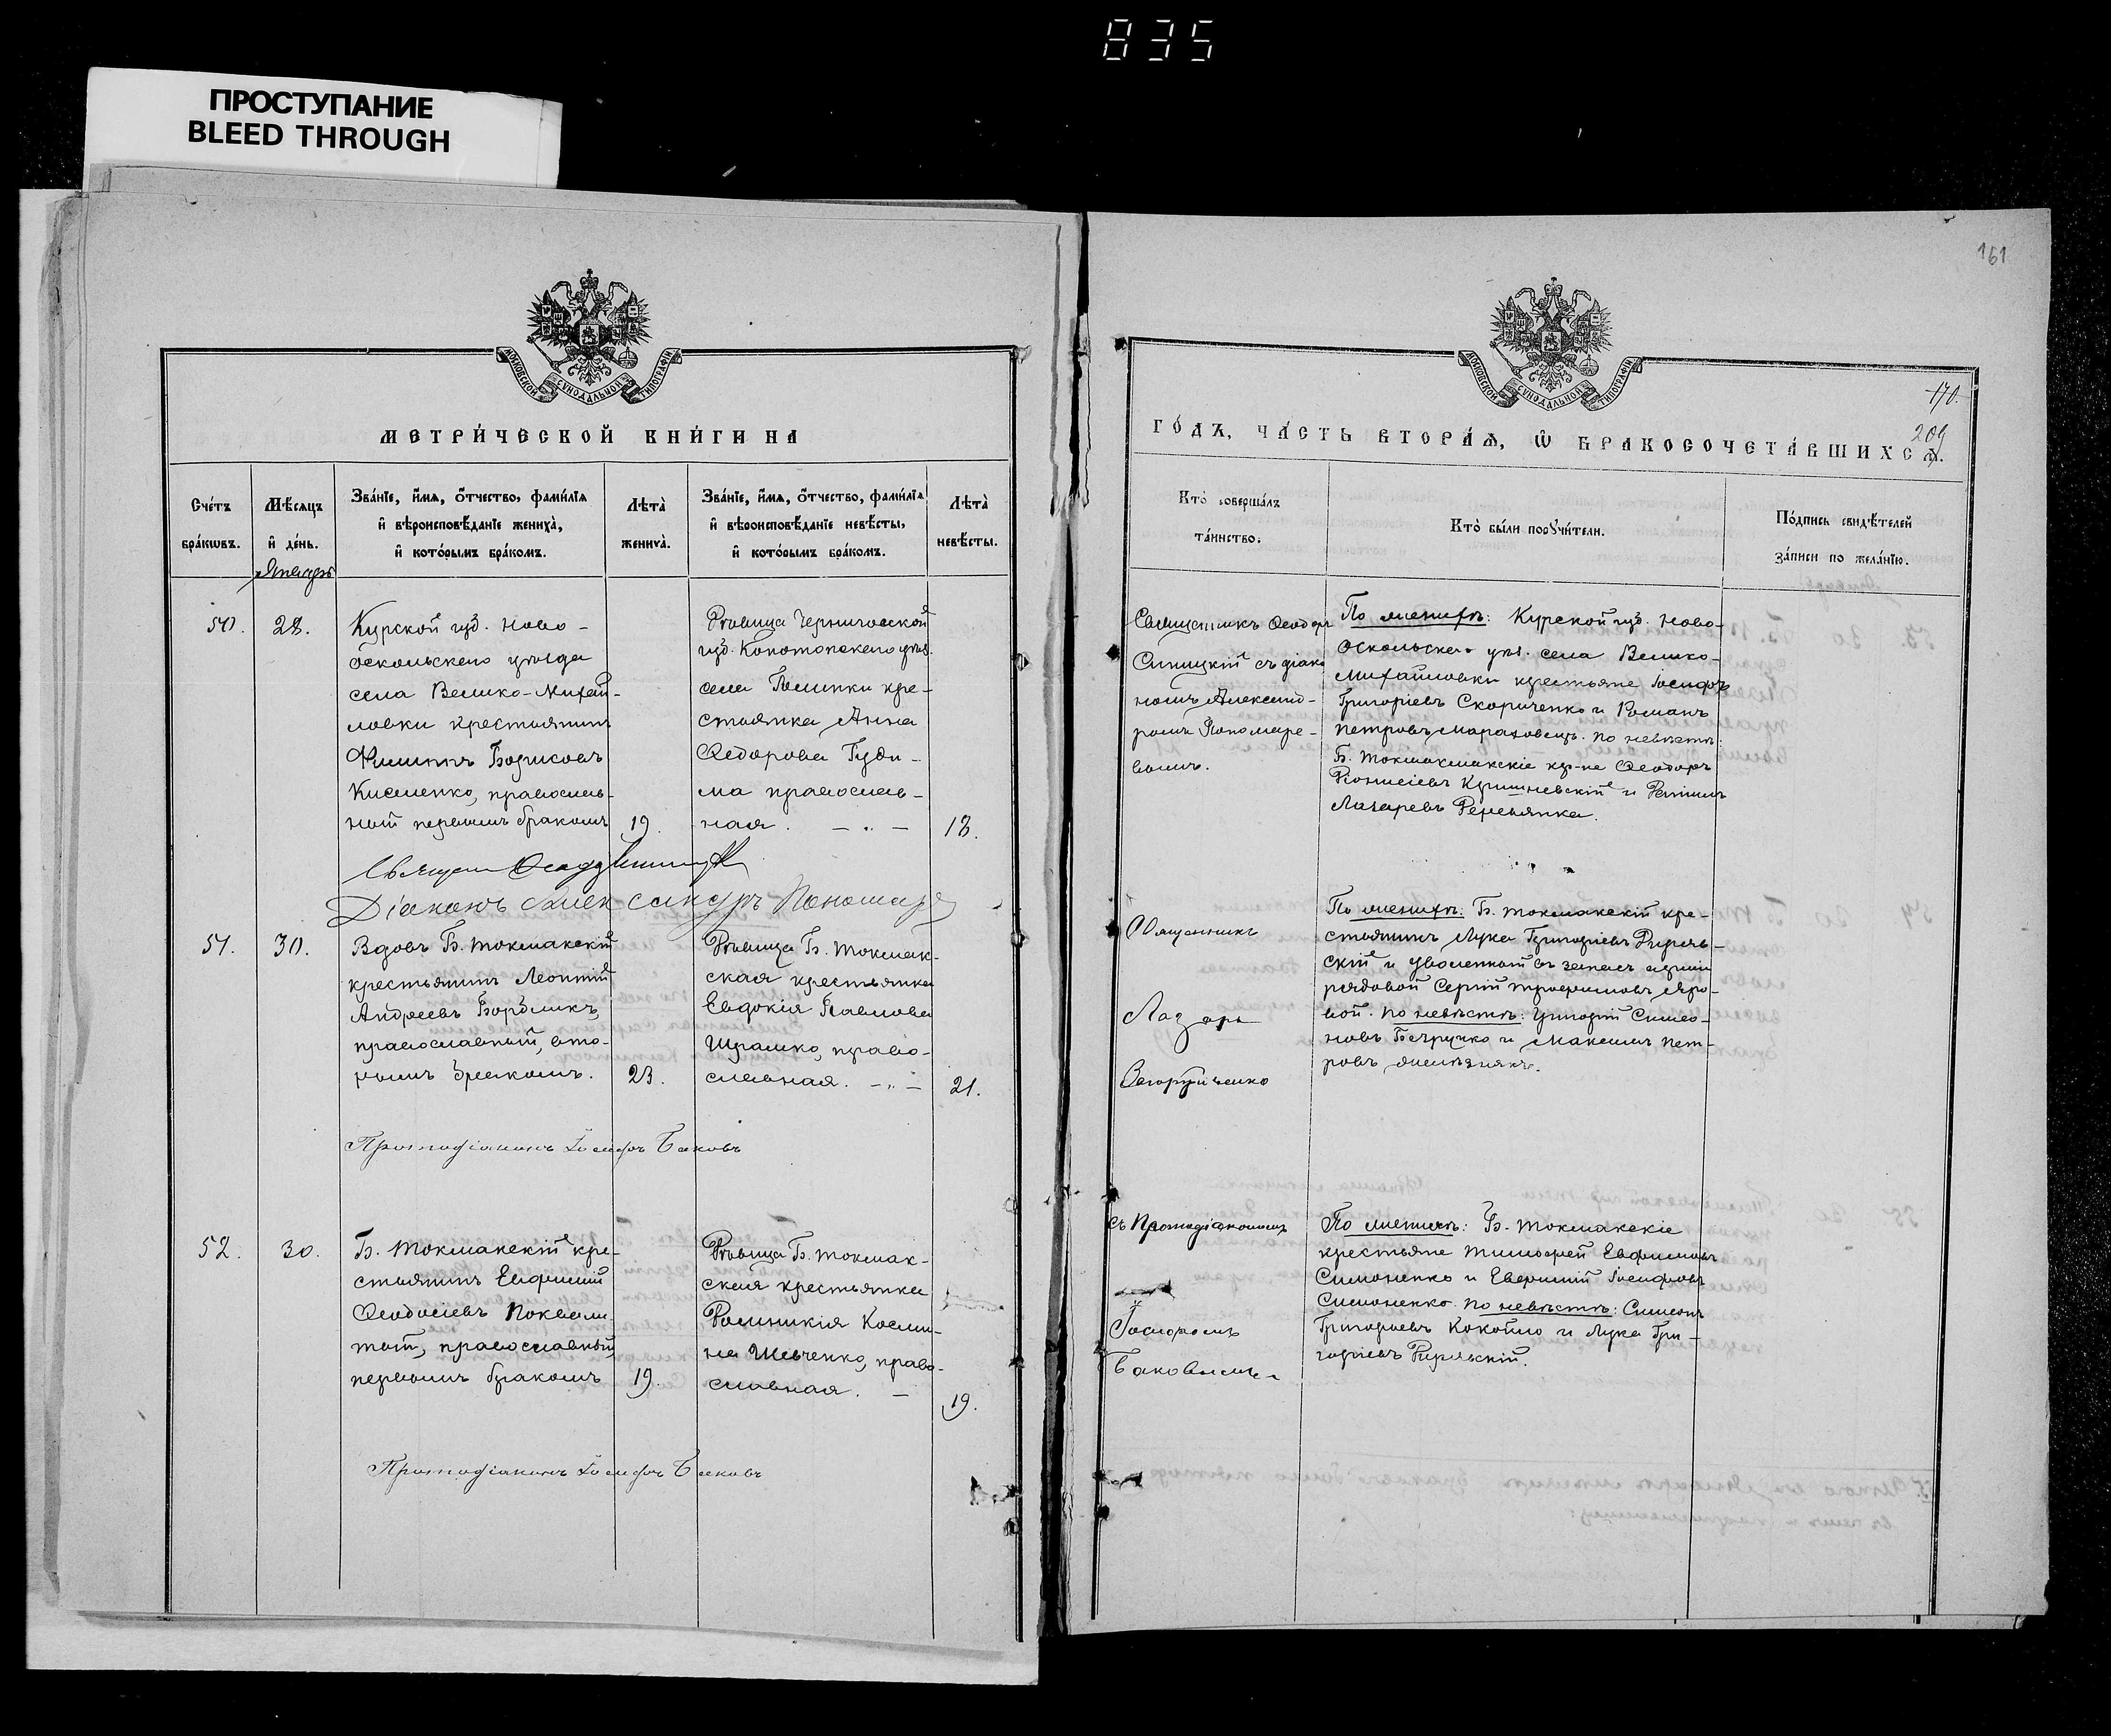 835
ПРОСТУПАНИЕ
BLEED THROUGH
161
МОСКОВСКОЙ СѴНОДАЛЬНОЙ ТИПОГРАФІИ
МЕТРИ́ЧЕСКОЙ КНИ́ГИ НА
Сче́тъ
бра́кѡвъ.
Мѣ́сяцъ
и҆ де́нь.
Зва́нїе, и҆́мя, ѻ҆́тчество, фами́лїя
и҆ вѣроисповѣ́данїе жениха̀,
и҆ кото́рымъ бра́комъ.
Лѣта̀
жениха̀.
Зва́нїе, и҆́мя, ѻ҆́тчество, фами́лїя
и҆ вѣроисповѣ́данїе невѣ́сты,
и҆ кото́рымъ бра́комъ.
Лѣта̀
невѣ́сты.
Январь
50.
28.
Курской губ. Ново-
оскольскаго уѣзда
села Велико-Михай-
ловки крестьянинъ
Филиппъ Борисовъ
Кисленко, православ-
ный первымъ бракомъ
19.
Дѣвица Черниговской
губ. Конотопскаго уѣз.
села крe-
стьянка Анна
Ѳедорова Гуди-
ма православ-
ная. — „ —
18.
Діаконъ Александръ Пономарев
51.
30.
Вдовъ Б. Токмакскій
крестьянинъ Леонтій
Андреевъ
православный, вто-
рымъ бракомъ.
23.
Дѣвица Б. Токмак-
ская крестьянка
Евдокія Павлова
Шрамко, право-
славная. — „ —
21.
Протодіаконъ Іосифъ Баковъ
52.
30.
Б. Токмакскій кре-
стьянинъ Евфимій
Ѳеодосіевъ
православный
первымъ бракомъ
19.
Дѣвица Б. Токмак-
ская крестьянка
Косми-
на Шевченко, право-
славная. —
19.
Протодіаконъ Іосифъ Баковъ
МОСКОВСКОЙ СѴНОДАЛЬНОЙ ТИПОГРАФІИ
170.
209
ГО́ДЪ, ЧА́СТЬ ВТОРА́Ѧ, Ѡ҆ БРАКОСОЧЕТА́ВШИХСѦ.
Кто̀ соверша́лъ
та́инство.
Кто̀ бы́ли порꙋчи́тели.
По́дпись свидѣ́телей
за́писи по жела́нїю.
Священникъ Ѳеодоръ
Синицкій съ діако
номъ Александ-
ромъ Пономаре-
вымъ.
По женихѣ: Курской губ. Ново-
Оскольскаго уѣз. села Велико-
Михайловки крестьяне Іосифъ
Григоріевъ Скориченко и Романъ
Петровъ Мараховецъ. По невѣстѣ:
Б. Токмакскіе кр-не Ѳеодоръ
Діонисіевъ и
Лазаревъ Деревянка.
Священникъ
Лазарь
По женихѣ: Б. Токмакскій кре-
стьянинъ Лука Григоріевъ
и уволенный въ запасъ арміи
рядовой Сергій Трофимовъ Яро-
вой. По невѣстѣ: Григорій Симео-
новъ и Максимъ Пет-
ровъ
съ Протодіакономъ
Іосифомъ
Баковымъ
По женихѣ: Б. Токмакскіе
крестьяне Тимофей Евфимовъ
Симоненко и Евфимій Іосифовъ
Симоненко. По невѣстѣ: Симеонъ
Григоріевъ и Лука Гри-
горіевъ